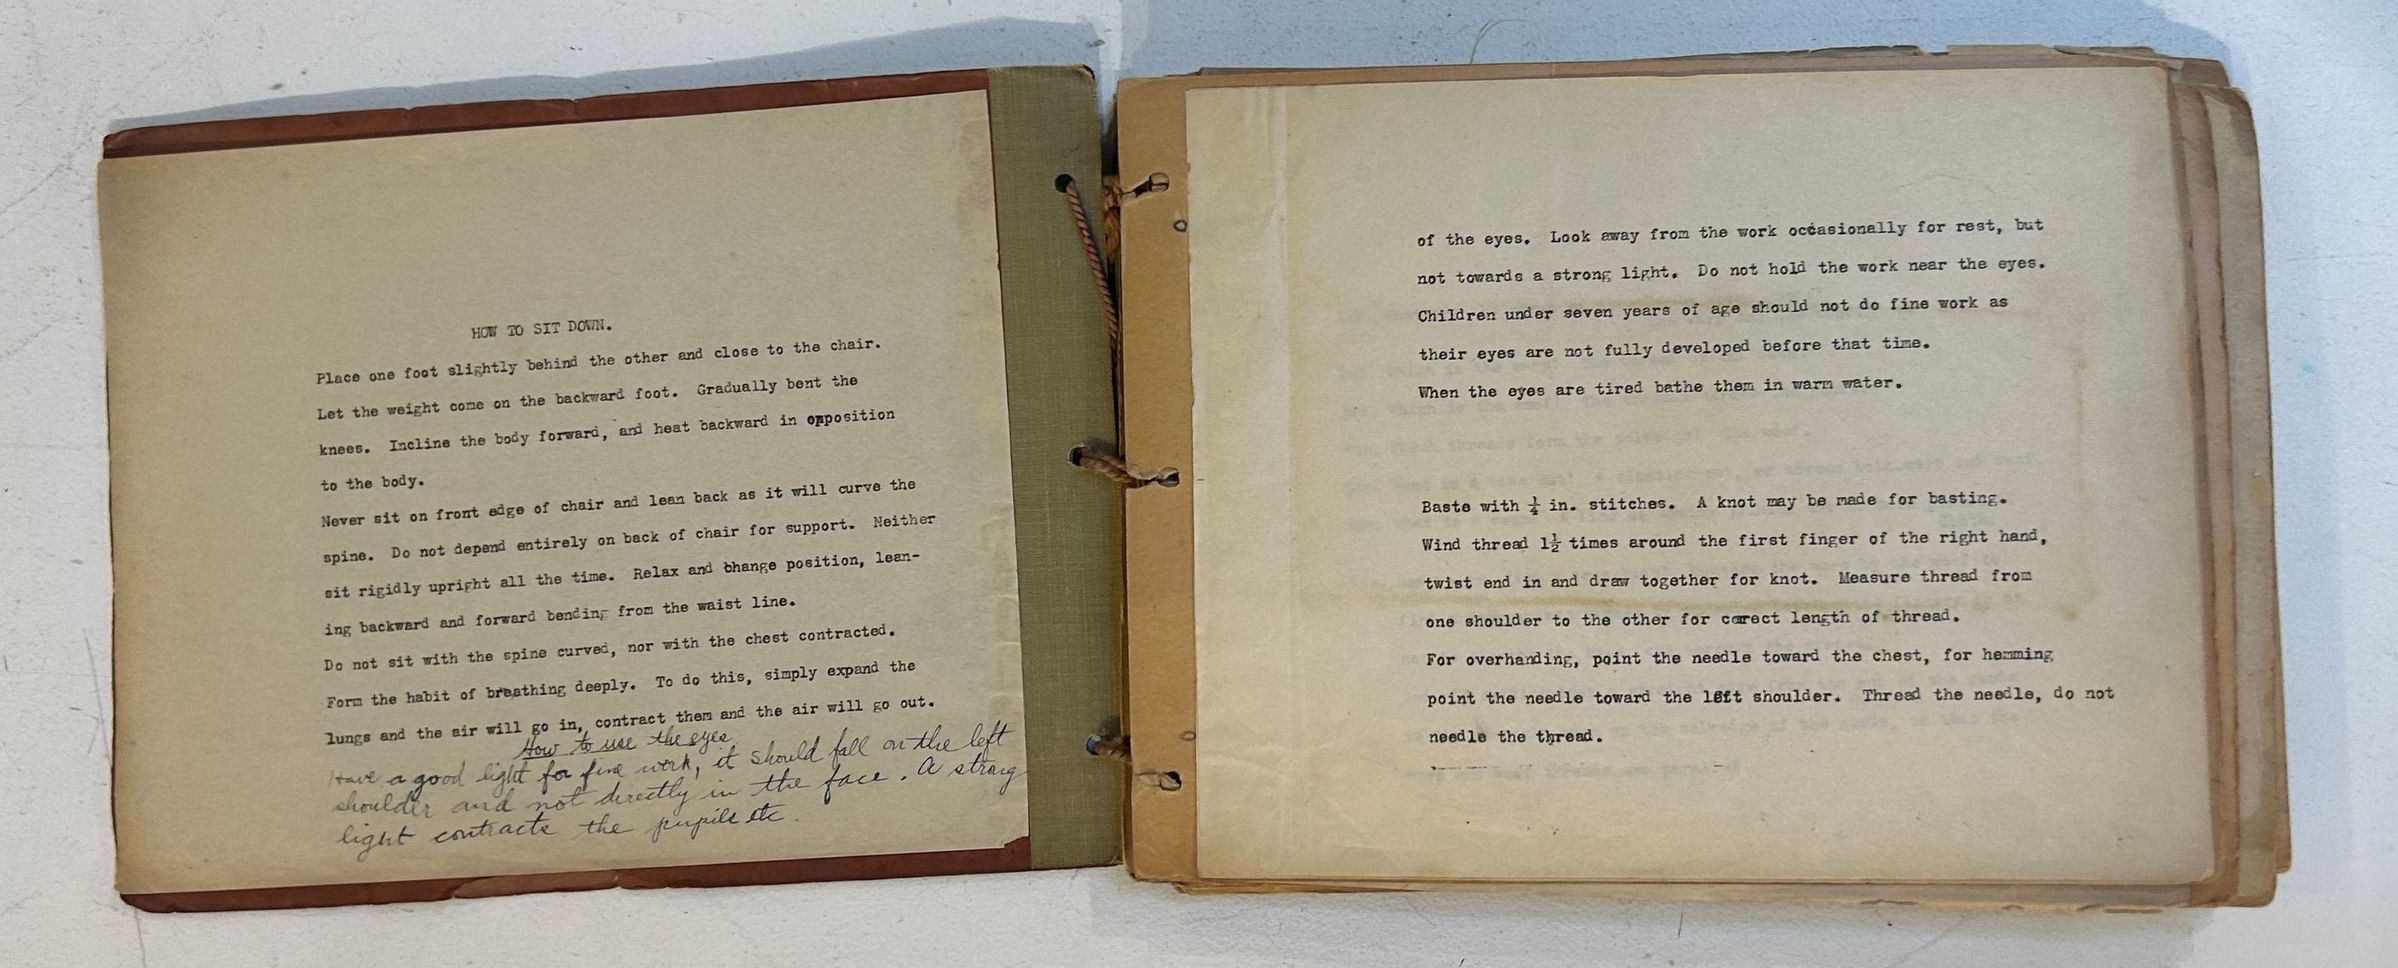 HOW TO SIT DOWN.
Place one foot slightly behind the other and close to the chair.
Let the weight come on the backward foot.  Gradually bent the
knees.  Incline the body forward, and heat backward in opposition
to the body.
Never sit on front edge of chair and lean back as it will curve the
spine.  Do not depend entirely on back of chair for support.  Neither
sit rigidly upright all the time.  Relax and bhange position, lean-
ing backward and forward bending from the waist line.
Do not sit with the spine curved, nor with the chest contracted.
Form the habit of breathing deeply.  To do this, simply expand the
lungs and the air will go in, contract them and the air will go out.
How to use the eyes
Have a good light for fine work, it should fall on the left
shoulder and not directly in the face. A strong
light contracts the pupils etc.
of the eyes.  Look away from the work occasionally for rest, but
not towards a strong light.  Do not hold the work near the eyes.
Children under seven years of age should not do fine work as
their eyes are not fully developed before that time.
When the eyes are tired bathe them in warm water.
Baste with ¼ in. stitches.  A knot may be made for basting.
Wind thread 1½ times around the first finger of the right hand,
twist end in and draw together for knot.  Measure thread from
one shoulder to the other for correct length of thread.
For overhanding, point the needle toward the chest, for hemming
point the needle toward the left shoulder.  Thread the needle, do not
needle the thread.